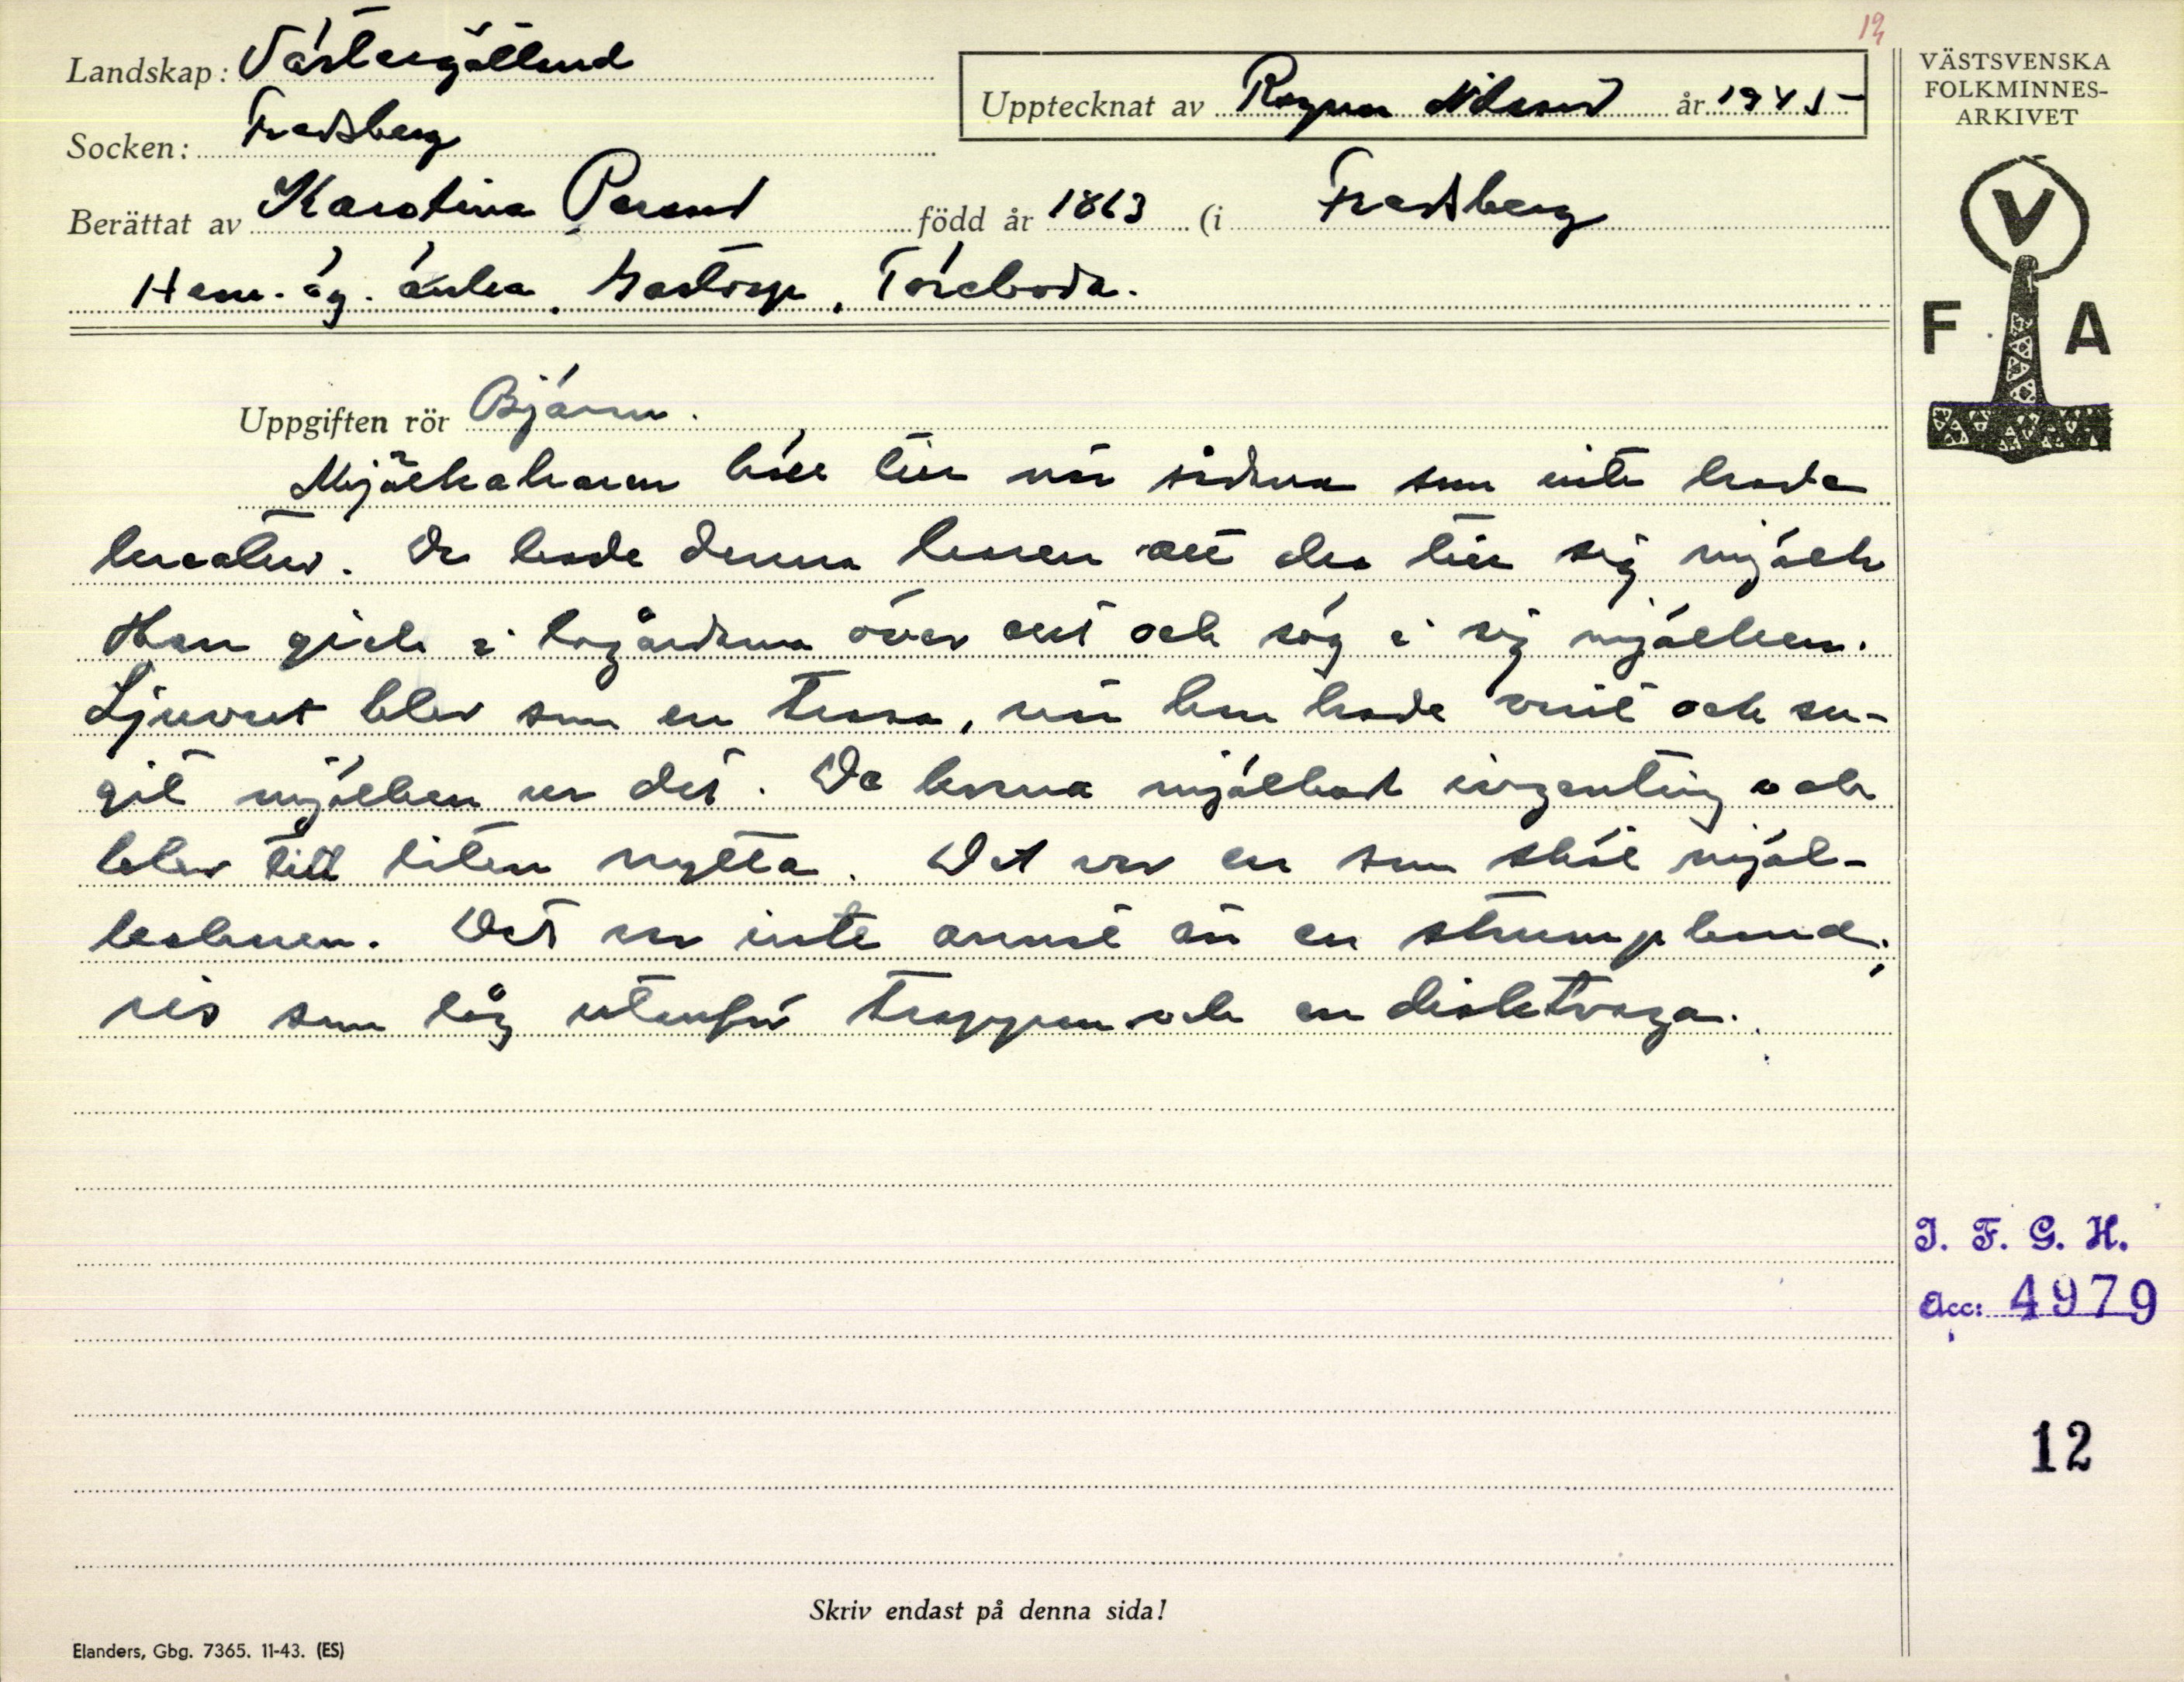 12
Landskap: Västergötland
Upptecknat av Ragnar Nilsson år 1945
VÄSTSVENSKA
FOLKMINNES-
ARKIVET
Socken: Fredsberg
Berättat av Karolina Persson född år 1863 (i Fredsberg
Hem. äg. änka, Töreboda.
V
F A
Uppgiften rör Bjäran.
Mjölkaharen höll till när sådana som inte hade
kreatur. De hade denna haren att dra till sig mjölk
Han gick i lagårdarna över allt och sög i sig mjölken.
Ljuvret blev som en trasa, när han hade varit och su-
git mjölken ur det. De korna mjölkad ingenting och
blev till liten nytta. Det var en som sköt mjöl-
kaharen. Det var inte annat än en strumpa,
ris som låg utanför trappen och en disktraga.
I. F. G. H.
Acc: 4979
12
Skriv endast på denna sida!
Elanders, Gbg. 7365. 11-43. (ES)